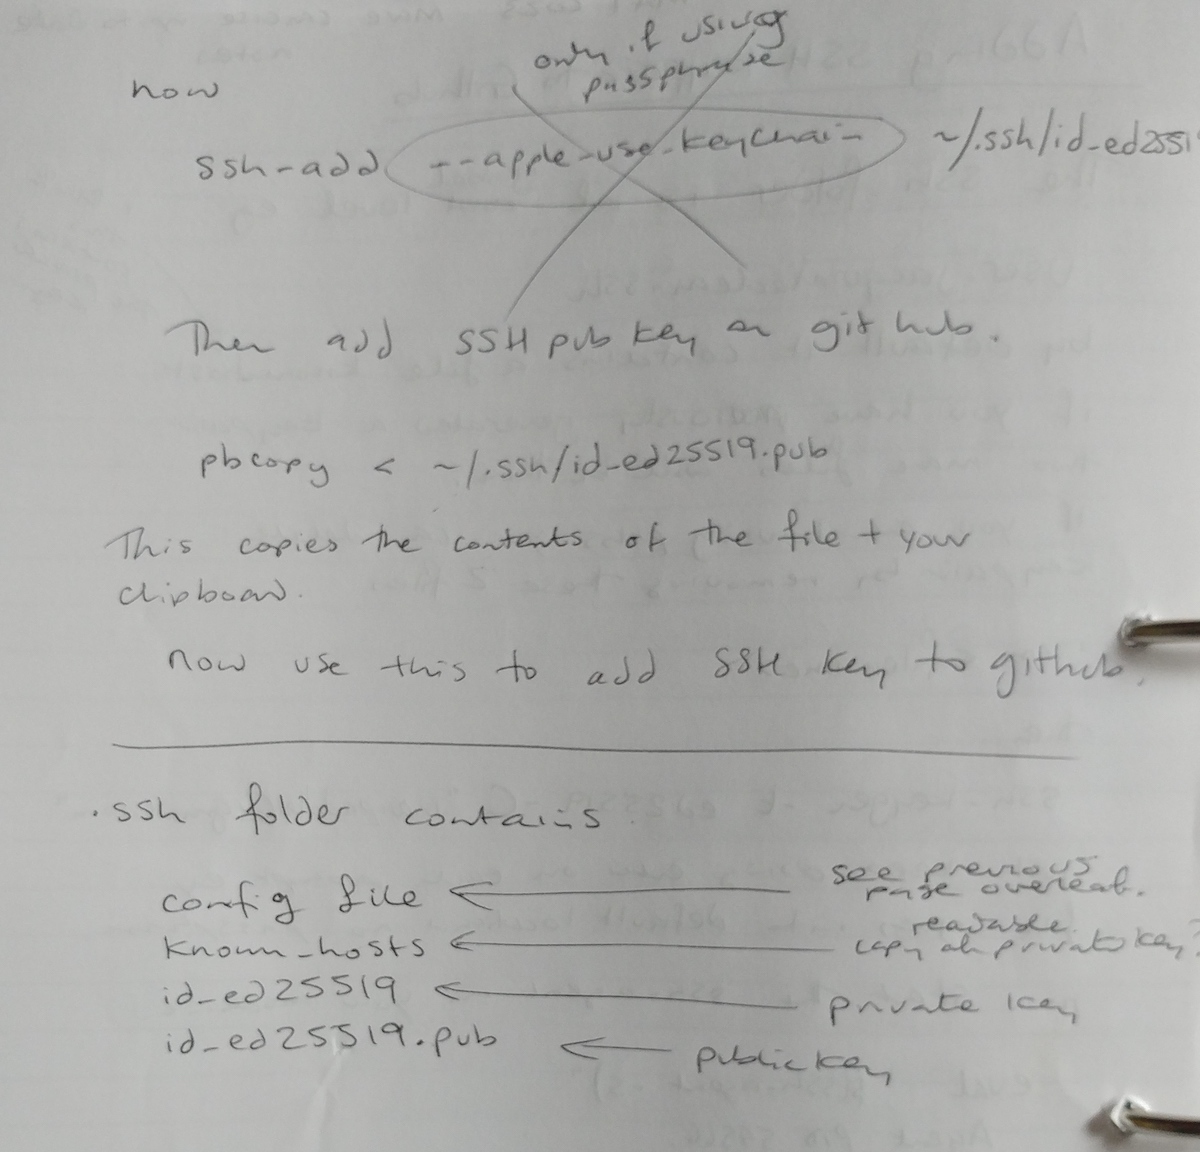 only if using
passphrase
now
ssh-add --apple-use-keychain ~/.ssh/id_ed2551
Then add SSH pub key on git hub.
pbcopy < ~/.ssh/id_ed25519.pub
This copies the contents of the file + your
clipboard.
now use this to add SSH key to github.
.ssh folder contains
config file see previous
page overleaf.
known_hosts readable
copy of private key?
id_ed25519 private key
id_ed25519.pub public key